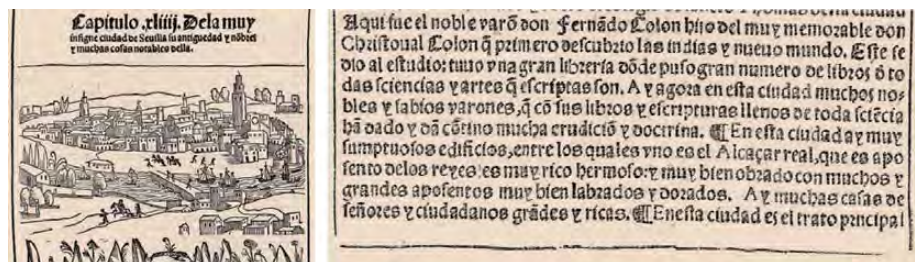 Capitulo .xliiij. De la muy
insigne ciudad de Seuilla su antiguedad ⁊ nõbres
⁊ muchas cosas notables della.
Aqui fue el noble varõ don Fernãdo Colon hijo del muy memorable don
Christoual Colon q̃ primero descubrio las indias y nueuo mundo. Este se
dio al estudio: tuuo vna gran libreria dõde puso gran numero de libros ð to
das sciencias ⁊ artes q̃ escriptas son. Ay agora en esta ciudad muchos no⸗
bles ⁊ sabios varones, q̃ cõ sus libros ⁊ escripturas llenos de toda sciẽcia
hã dado ⁊ dã cõtino mucha erudiciõ ⁊ doctrina. ¶ En esta ciudad ay muy
sumptuosos edificios, entre los quales vno es el Alcaçar real, que es apo
sento delos reyes: es muy rico hermoso: ⁊ muy bien obrado con muchos ⁊
grandes aposentos muy bien labrados ⁊ dorados. Ay muchas casas de
señores ⁊ ciudadanos grãdes ⁊ ricas. ¶ Enesta ciudad es el trato principal